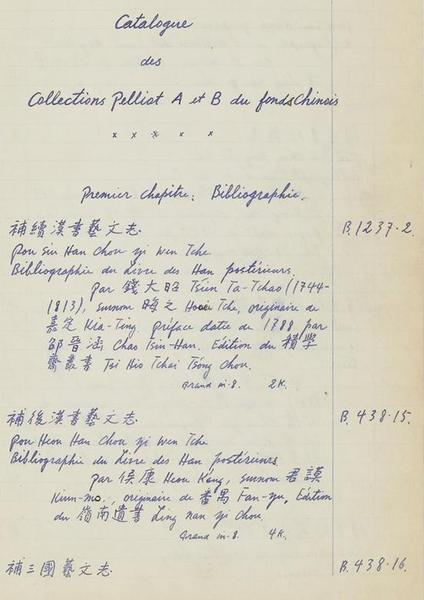 Catalogue
des
Collections Pelliot A et B du fonds Chinois
x x x x x
Premier chapitre: Bibliographie.
補續漢書藝文志. B.1237-2.
Pou Siu Han Chou yi wen Tche
Bibliographie du Livre des Han postérieurs.
par 錢大昭 Tsien Ta-Tchao (1744-
1813), surnom 晦之 Houei Tche, originaire de
嘉定 Kia-Ting, préface datée de 1788 par
邵晉涵 Chao Tsin-Han. Edition du 積學
齋叢書 Tsi Hio Tchai Tsong Chou.
Grand in-8. 2K.
補後漢書藝文志. B.438-15.
Pou Heou Han Chou yi wen Tche
Bibliographie du Livre des Han postérieurs.
par 侯康 Heou K'ang, surnom 君謨
Kiun-mo., originaire de 番禺 Fan-yu, Edition
du 嶺南遺書 Ling nan yi Chou.
Grand in-8. 4K.
補三國藝文志. B.438-16.